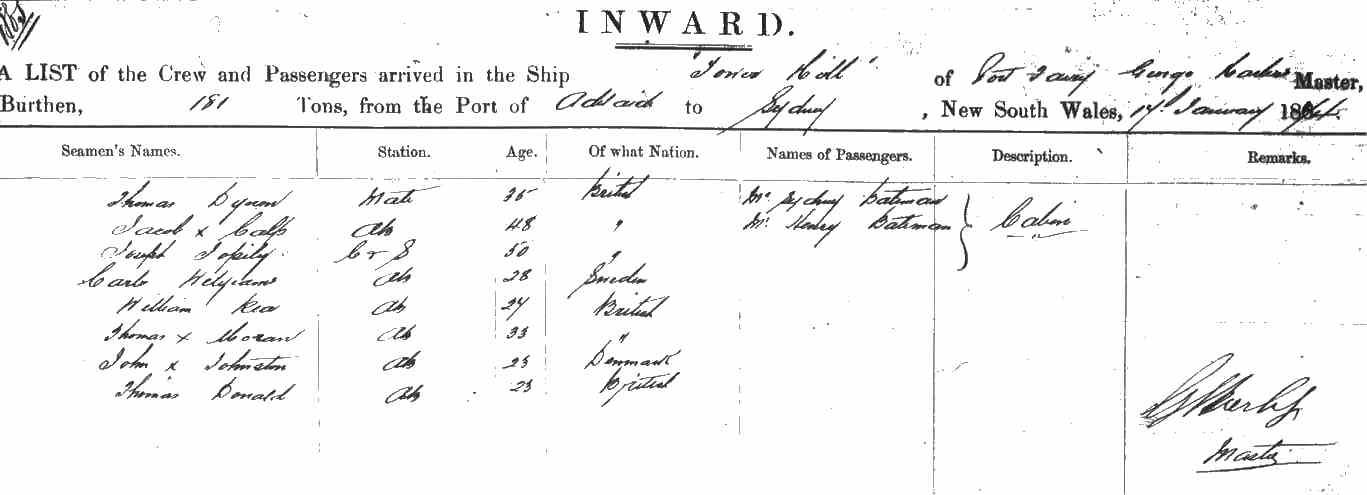 INWARD.
A LIST of the Crew and Passengers arrived in the Ship "Tower Hill" of Port Fairy George Master,
Burthen, 181 Tons, from the Port of Adelaide to Sydney, New South Wales, 17th January 188
Seamen's Names. Station. Age. Of what Nation. Names of Passengers. Description. Remarks.
Thomas Dynon Mate 35 British Mr Sydney Bateman
Jacob x Ab 48 " Mr Henry Bateman Cabin
Joseph C & S 50 "
Ab 28 Sweden
William Rea Ab 24 British
Thomas x Moran Ab 33 "
John x Johnston Ab 23 Denmark
Thomas Donald Ab 23 British
Master